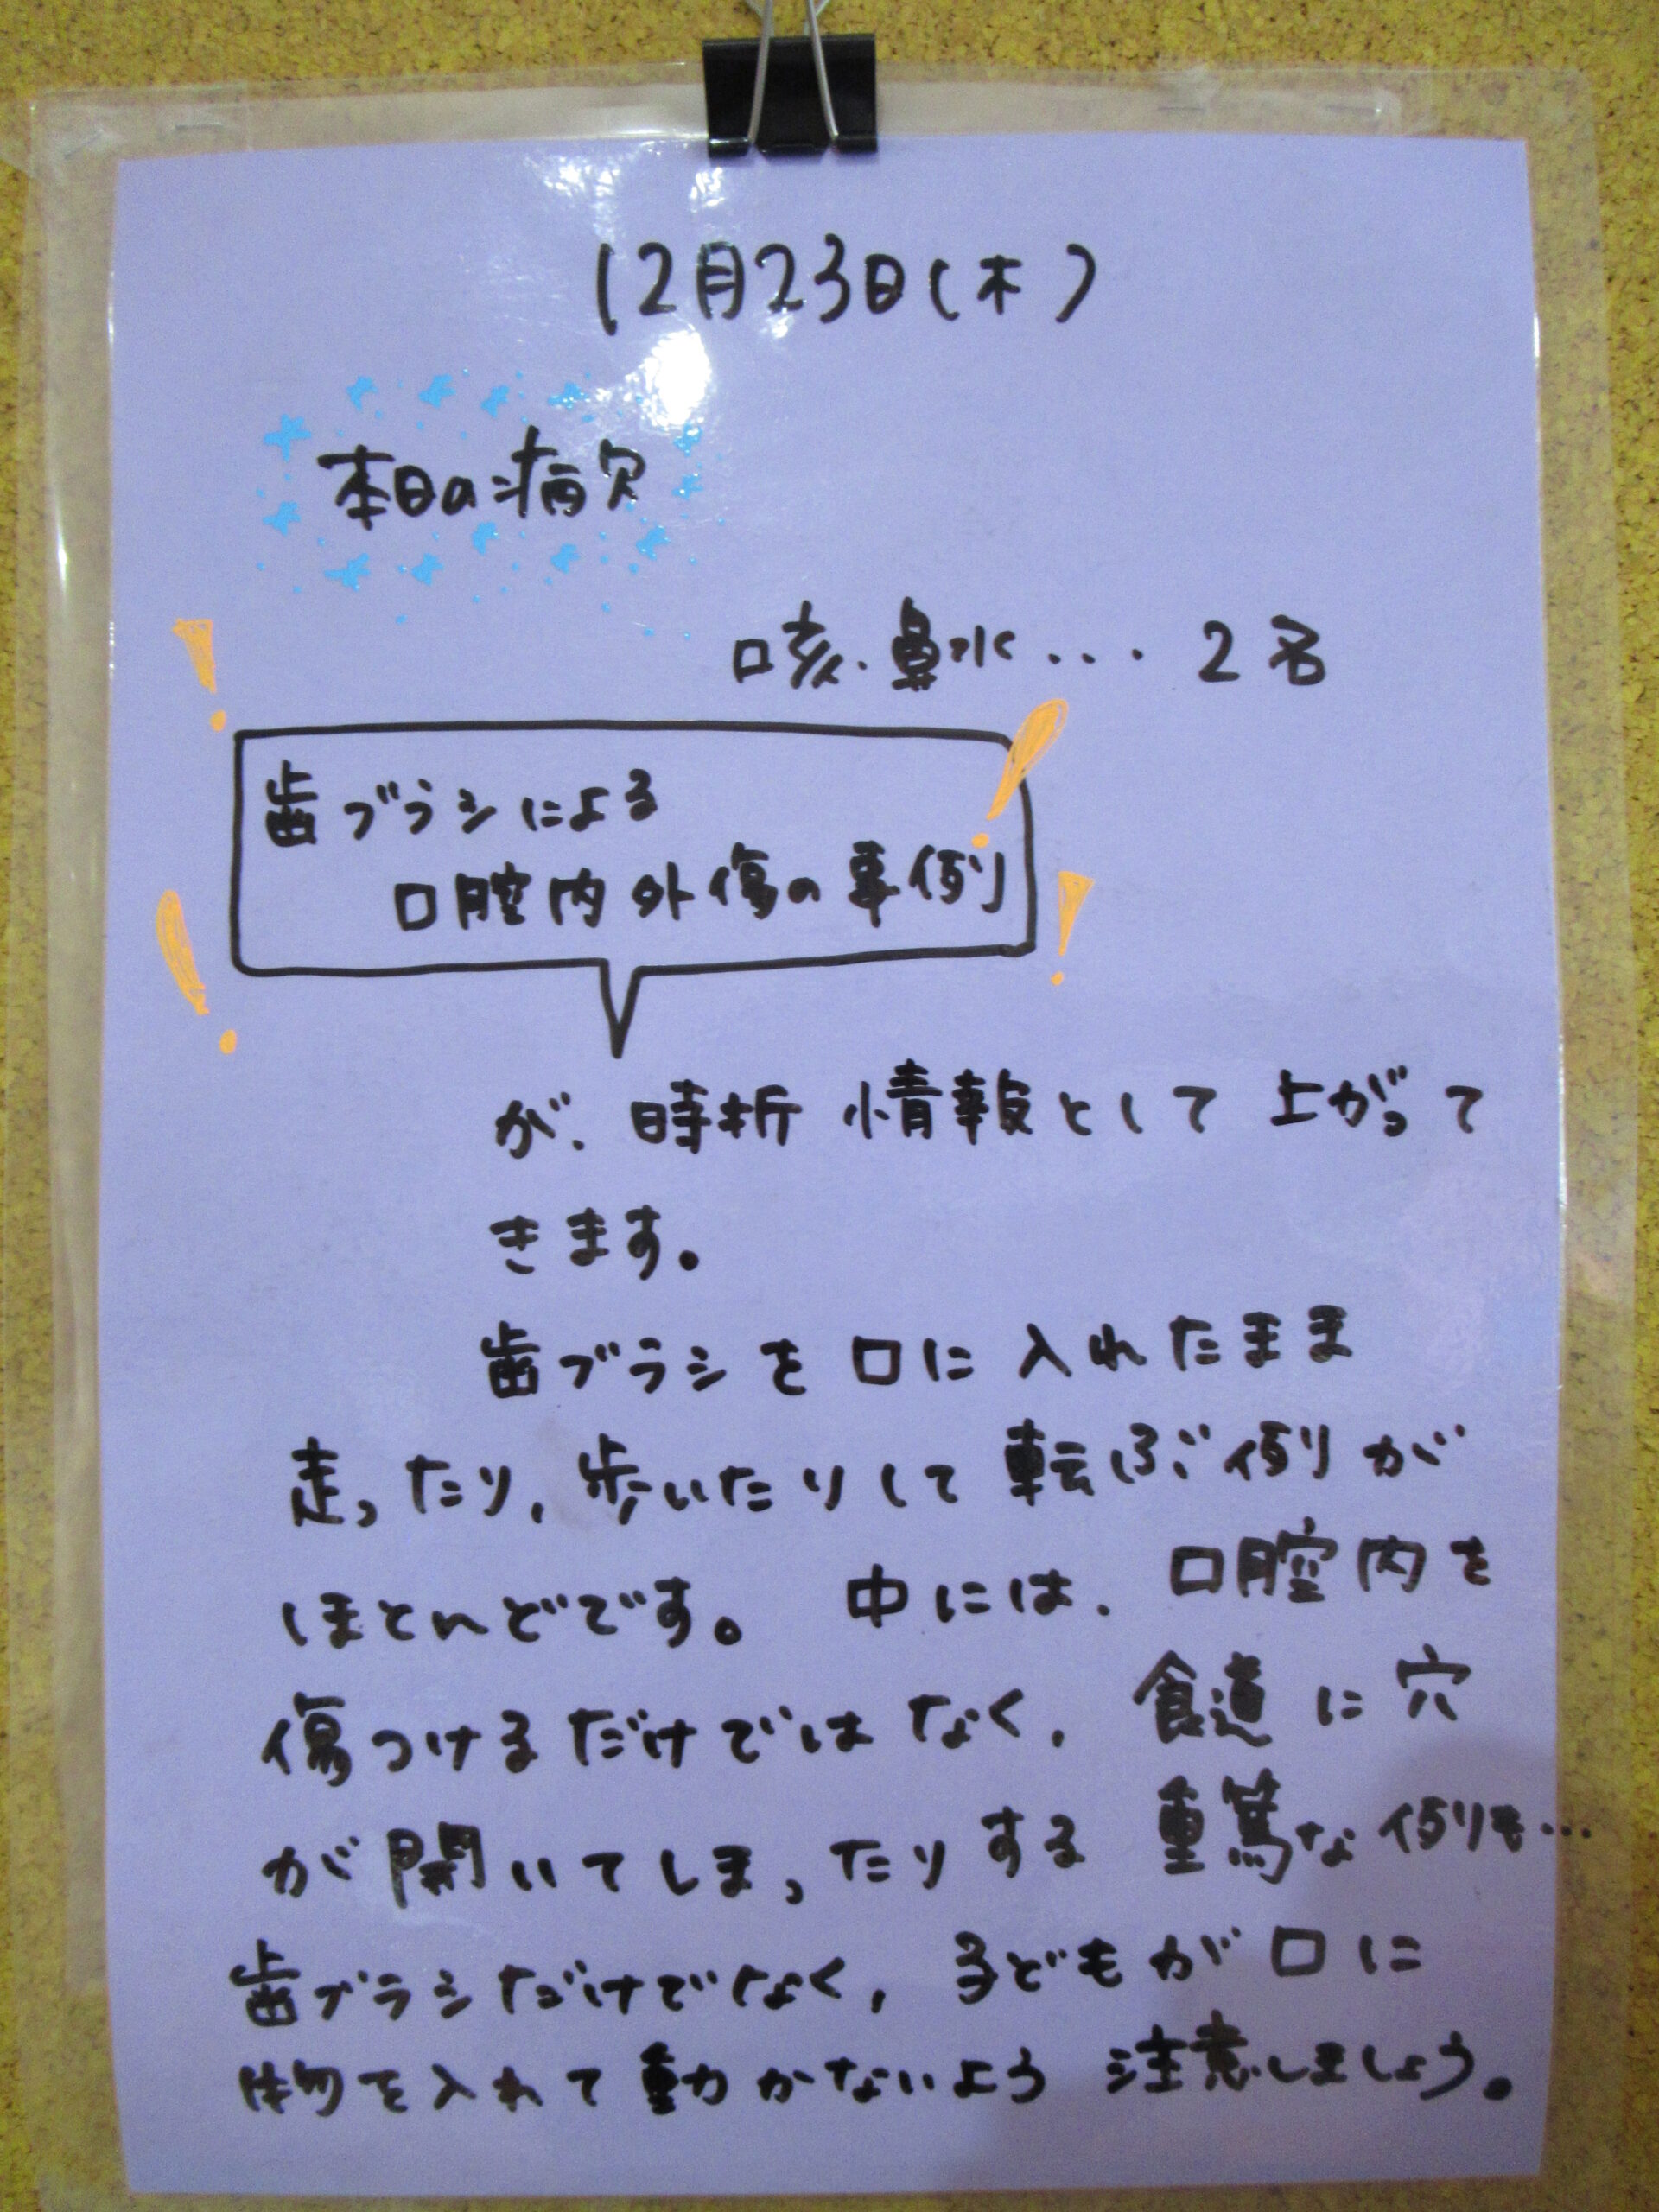 12月23日(木)
本日の病欠
咳・鼻水... 2名
歯ブラシによる
口腔内外傷の事例
が、時折 情報として 上がって
きます。
歯ブラシを口に入れたまま
走ったり、歩いたりして転ぶ例が
ほとんどです。 中には、口腔内を
傷つけるだけではなく、食道に穴
が開いてしまったりする重篤な例も...
歯ブラシだけでなく、子どもが口に
物を入れて動かないよう注意しましょう。